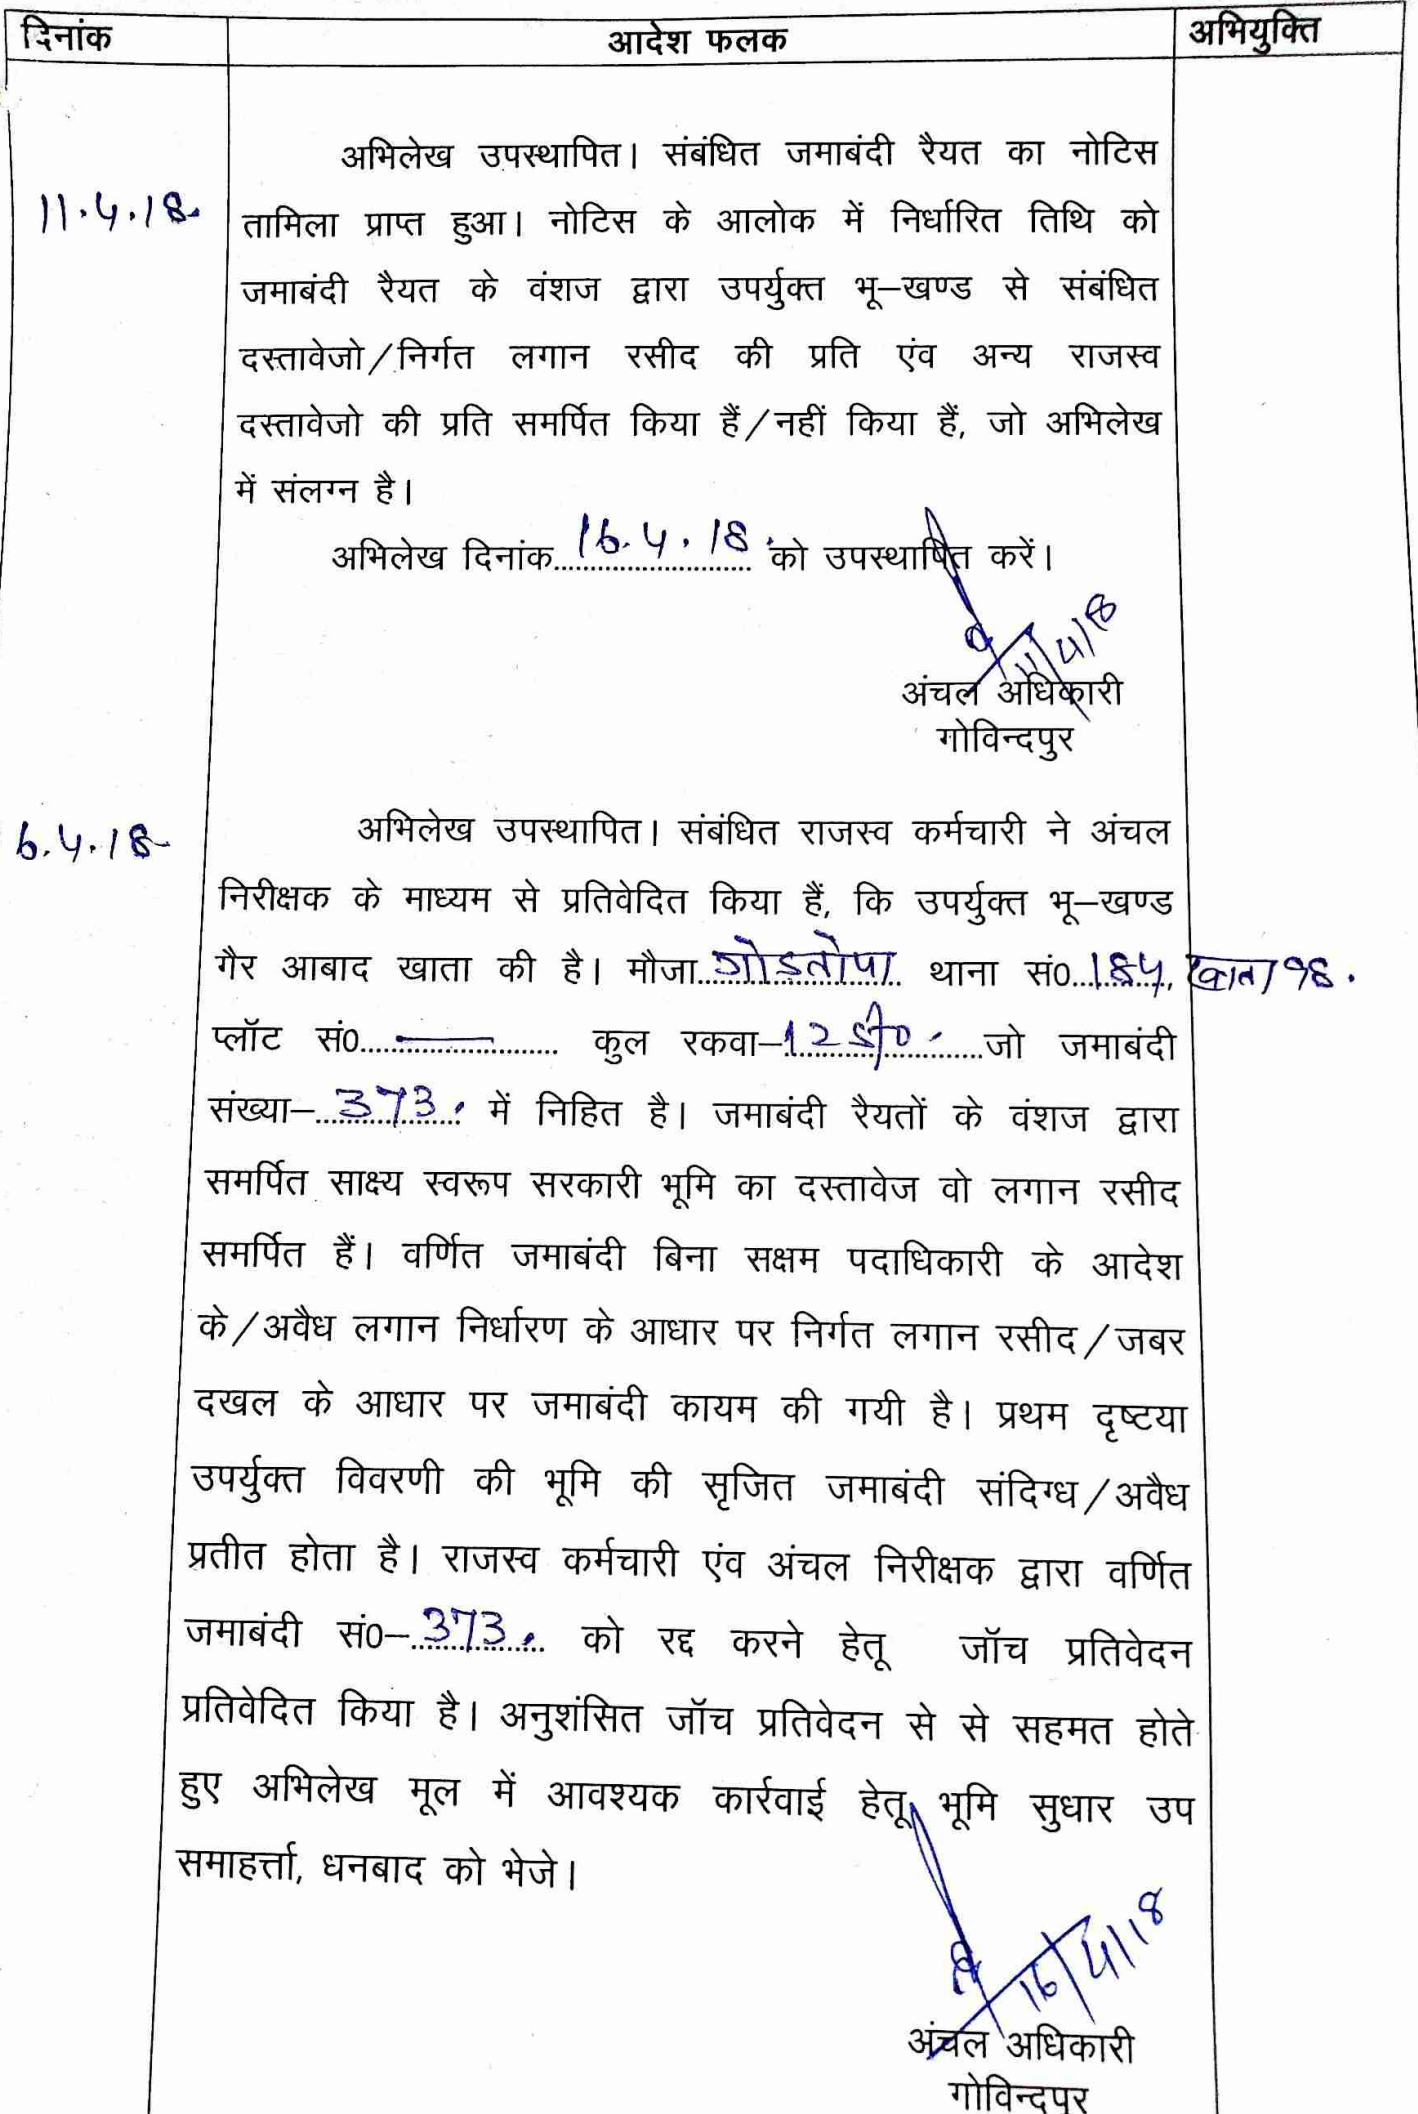 दिनांक आदेश फलक अभियुक्ति
अभिलेख उपस्थापित। संबंधित जमाबंदी रैयत का नोटिस
11.4.18 तामिला प्राप्त हुआ। नोटिस के आलोक में निर्धारित तिथि को
जमाबंदी रैयत के वंशज द्वारा उपर्युक्त भू–खण्ड से संबंधित
दस्तावेजो/निर्गत लगान रसीद की प्रति एंव अन्य राजस्व
दस्तावेजो की प्रति समर्पित किया हैं/नहीं किया हैं, जो अभिलेख
में संलग्न है।
अभिलेख दिनांक 16.4.18 को उपस्थापित करें।
11/4/18
अंचल अधिकारी
गोविन्दपुर
6.4.18 अभिलेख उपस्थापित। संबंधित राजस्व कर्मचारी ने अंचल
निरीक्षक के माध्यम से प्रतिवेदित किया हैं, कि उपर्युक्त भू–खण्ड
गैर आबाद खाता की है। मौजा गोडतोपा थाना सं0 184, खाता 98.
प्लॉट सं0 — कुल रकवा– जो जमाबंदी
संख्या– 373. में निहित है। जमाबंदी रैयतों के वंशज द्वारा
समर्पित साक्ष्य स्वरूप सरकारी भूमि का दस्तावेज वो लगान रसीद
समर्पित हैं। वर्णित जमाबंदी बिना सक्षम पदाधिकारी के आदेश
के/अवैध लगान निर्धारण के आधार पर निर्गत लगान रसीद/जबर
दखल के आधार पर जमाबंदी कायम की गयी है। प्रथम दृष्टया
उपर्युक्त विवरणी की भूमि की सृजित जमाबंदी संदिग्ध/अवैध
प्रतीत होता है। राजस्व कर्मचारी एंव अंचल निरीक्षक द्वारा वर्णित
जमाबंदी सं0– 373. को रद्द करने हेतू जॉच प्रतिवेदन
प्रतिवेदित किया है। अनुशंसित जॉच प्रतिवेदन से से सहमत होते
हुए अभिलेख मूल में आवश्यक कार्रवाई हेतू भूमि सुधार उप
समाहर्त्ता, धनबाद को भेजे।
16/4/18
अंचल अधिकारी
गोविन्दपुर